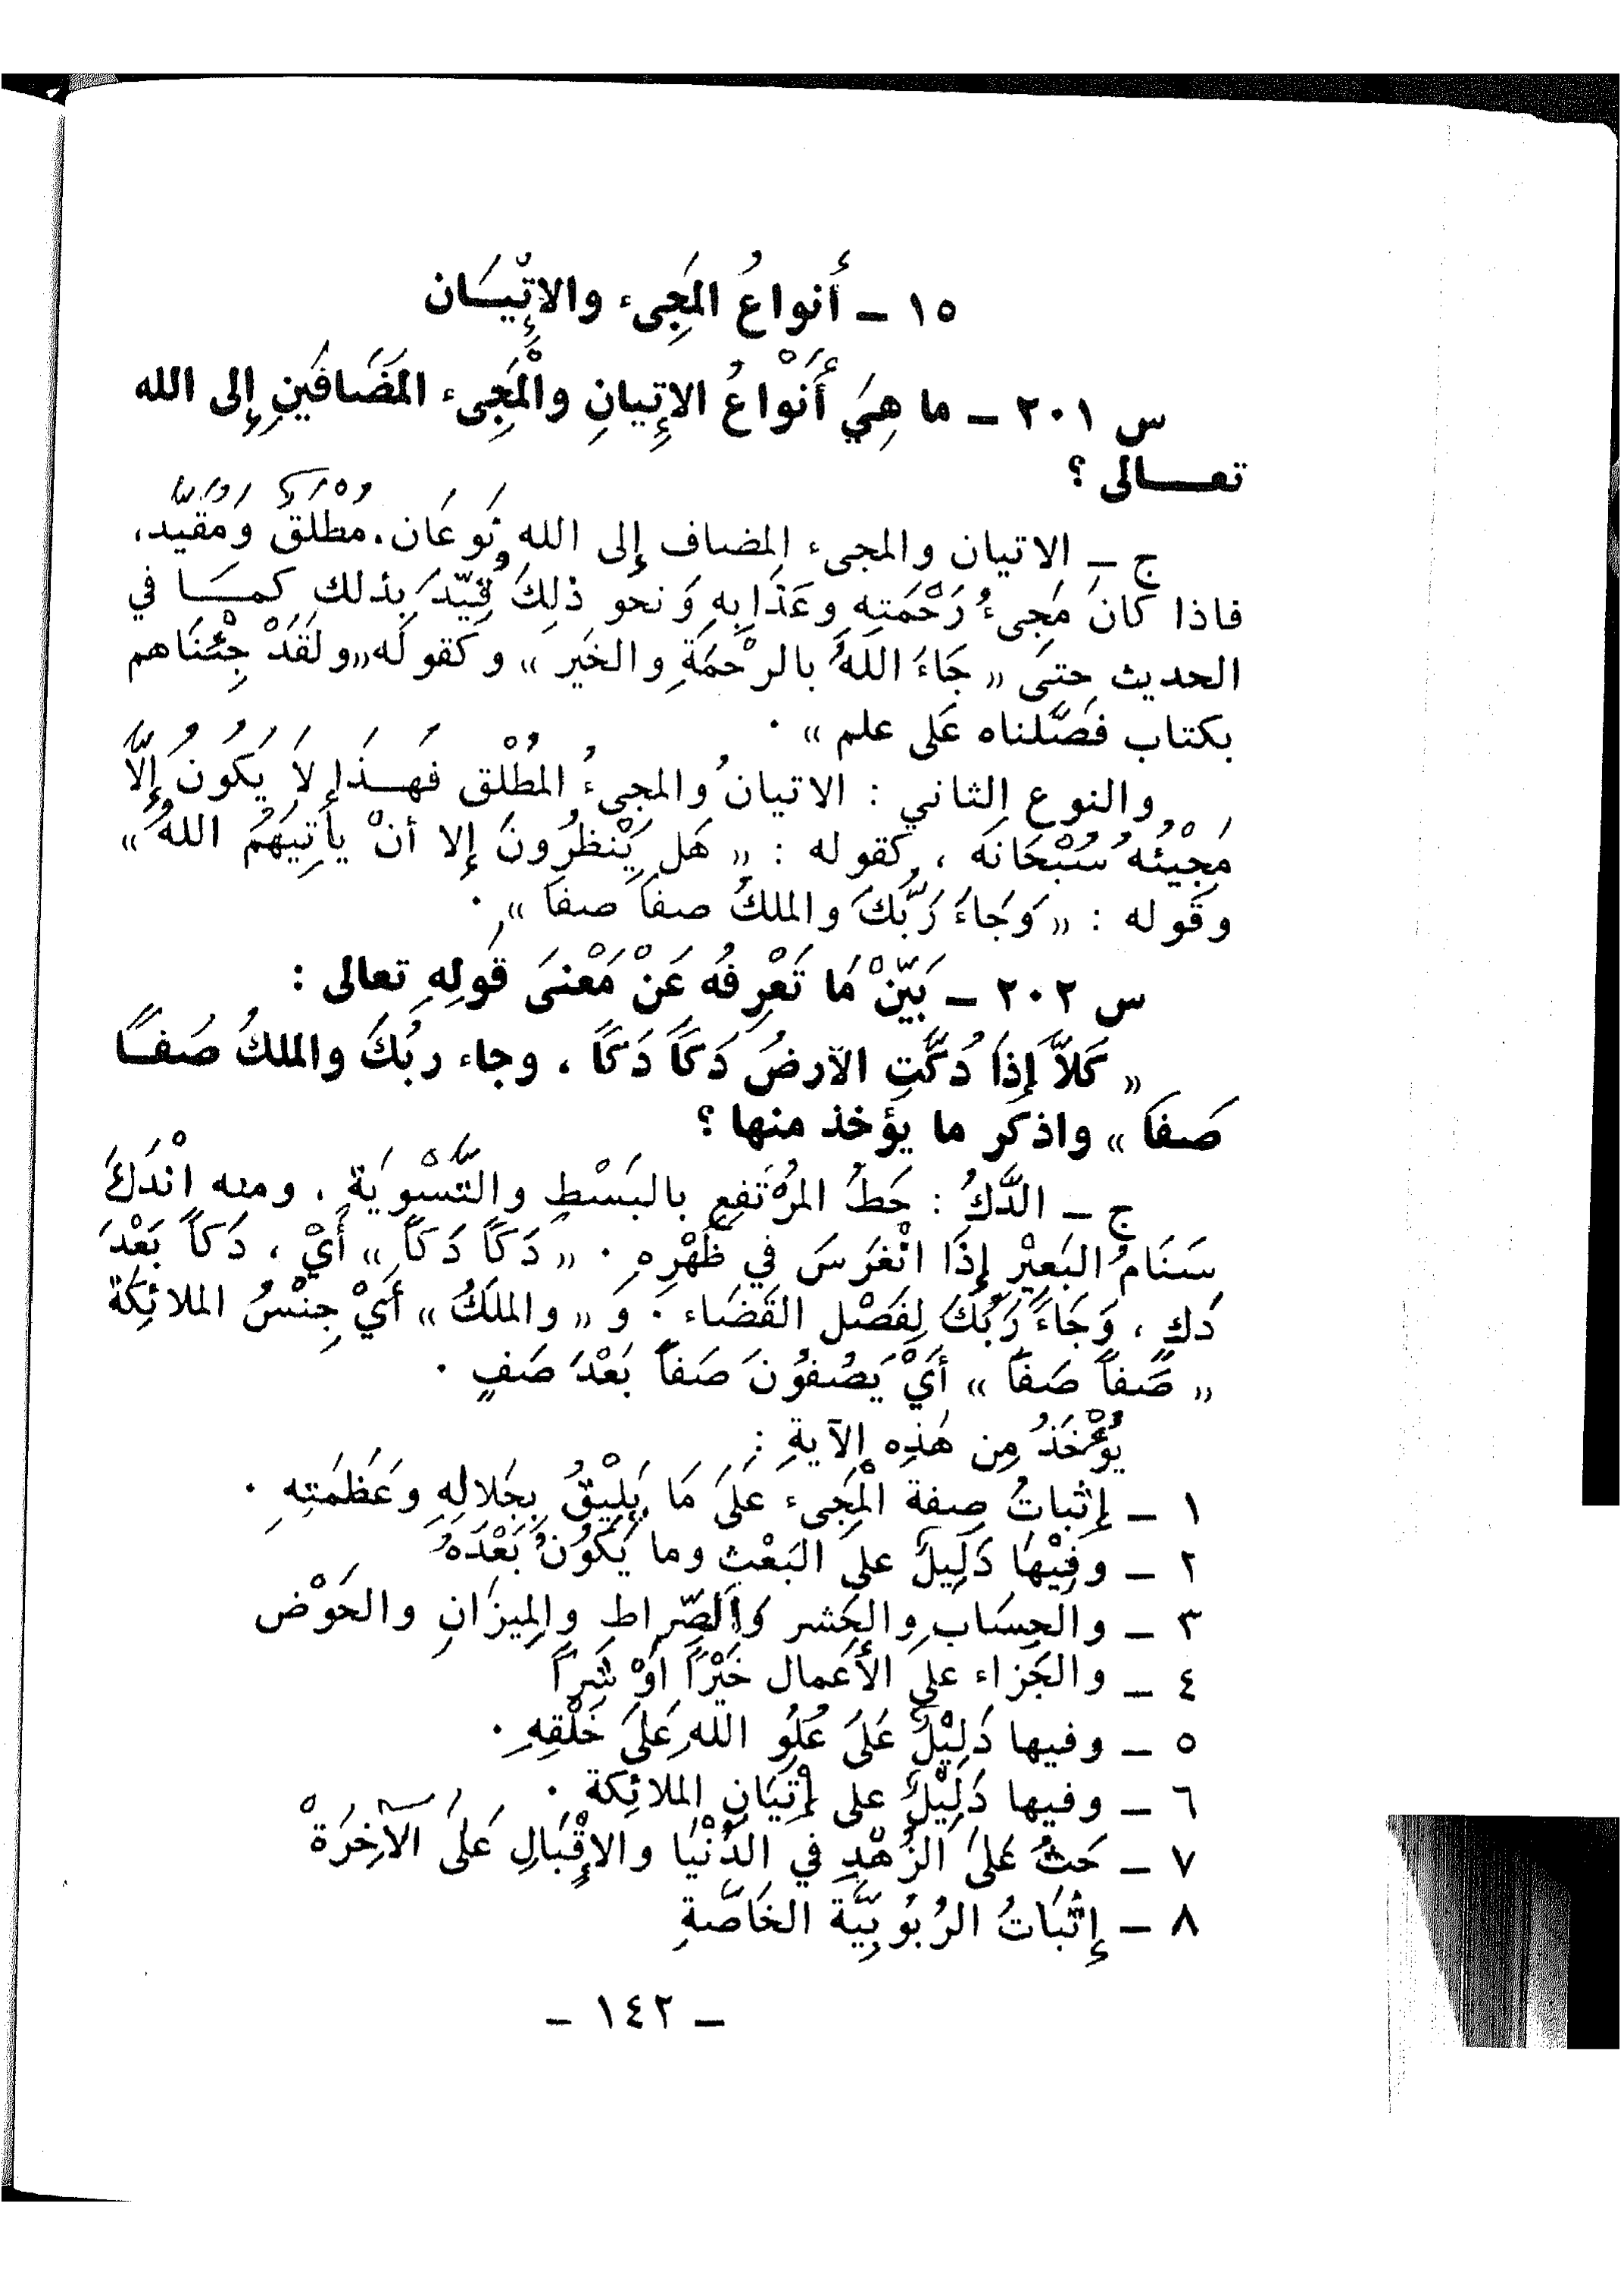 ١٥ – أَنواعُ المَجِىء والإِتْيَان
س ٢٠١ – ما هِيَ أَنْواعُ الإِتِيانِ والْمَجِىء المَضَافَينِ إِلى الله
تعالى ؟
ج – الاتيان والمجىء المضاف إِلى الله نَوعَان. مُطْلَقٌ وَمُقَيَّد،
فاذا كَانَ مَجِىءُ رَحْمَتِهِ وعَذَابِهِ وَنحو ذٰلِكَ قُيِّدَ بِذلك كمَا في
الحديث حتى « جَاءَ اللهُ بالرحْمَةِ والخَير » وكقوله «ولَقَدْ جِئْنَاهم
بكتاب فَصَّلناه عَلى علم » ·
والنوع الثاني : الاتيانُ والمجىءُ المُطْلق فَهذَا لاَ يَكُونُ إِلَّا
مَجِيْئُهُ سُبْحَانَه ، كقوله : « هَل يَنْظُرُونَ إِلا أَنْ يأتِيَهُمُ اللهُ »
وقَوله : « وَجَاءَ رَبُّكَ والملكُ صفاً صفاً » ·
س ٢٠٢ – بَيِّنْ مَا تَعْرِفُه عَنْ مَعْنىَ قَولِهِ تعالى :
« كَلاَّ إِذَا دُكَّتِ الأرضُ دَكاً دَكاً ، وجاء ربُكَ والملكُ صَفاً
صَفاً » واذكر ما يؤخذ منها ؟
ج – الدَّكُ : حَطُ المرْتَفِعِ بالبَسْطِ والتَّسْوِيَة ، ومنه انْدَكَ
سَنَامُ البَعِيْرِ إِذَا انْغَرَسَ في ظَهْرِهِ · « دَكاً دَكاً » أَيْ ، دَكاً بَعْدَ
دَكٍ ، وَجَاءَ رَبُكَ لِفَصْل القَضَاء · وَ « والملَكُ » أَيْ جِنْسُ الملائِكَة
« صَفاً صَفاً » أَيْ يَصُفوُنَ صَفاً بَعْدَ صَفٍ ·
يُؤْخَذُ مِن هٰذِه الآيةِ :
١ – إِثباتُ صِفة الْمَجِىء عَلىَ مَا يَلِيْقُ بِجَلالِهِ وَعَظَمَتِهِ ·
٢ – وفِيْهَا دَلِيلٌ على البَعْثِ وما يَكوُنُ بَعْدَهُ
٣ – والحِسَابِ والحَشر وَالصِّراطِ والمِيزَانِ والحَوْض
٤ – والجَزاء على الأَعمال خَيْراً أَوْ شَراً
٥ – وفيها دَلِيْلٌ عَلىَ عُلُو اللهِ عَلىَ خَلْقِهِ ·
٦ – وفيها دَلِيْلٌ على إِتْيَانِ الملائِكة ·
٧ – حَثٌ عَلىَ الزُهْدِ في الدُنْيَا والإِقْبَالِ عَلىَ الآخِرَةْ
٨ – إِثْبَاتُ الرُبُوبِيَّة الخَاصَّةِ
– ١٤٢ –